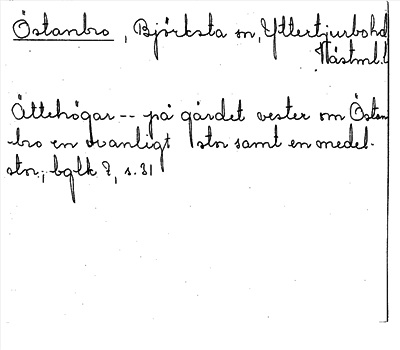 Östanbro, Björksta sn, Yttertjurbo hd
Västml. l
Ättehögar -- på gärdet vester om Östan
-bro en ovanligt stor samt en medel-
stor; bglk 7, s. 31